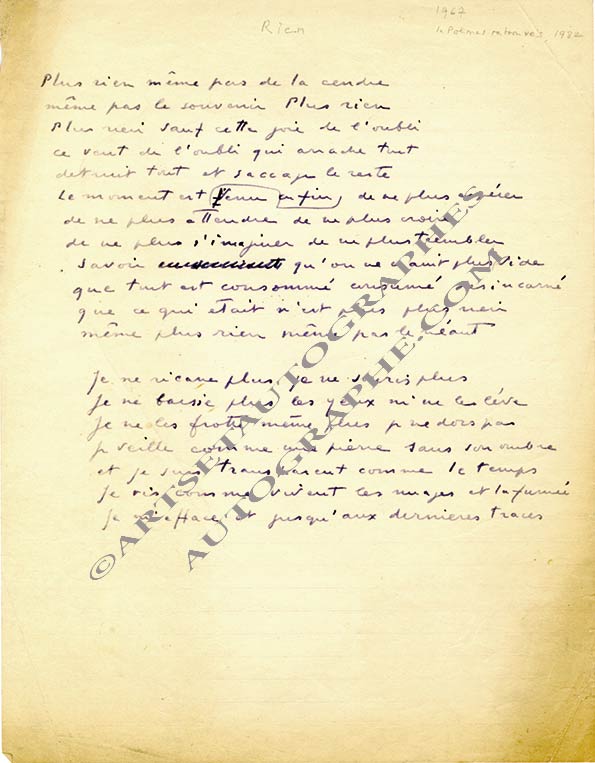 1967
Rien
in Poèmes retrouvés 1982
Plus rien même pas de la cendre
même pas le souvenir Plus rien
Plus rien sauf cette joie de l'oubli
ce vent de l'oubli qui arrache tout
detruit tout et saccage le reste
Le moment est venu enfin de ne plus espérer
de ne plus attendre de ne plus croire
de ne plus s'imaginer de ne plus trembler
Savoir qu'on ne craint plus le vide
que tout est consommé consumé désincarné
que ce qui était n'est plus plus rien
même plus rien même pas le néant
Je ne ricane plus je ne souris plus
Je ne baisse plus les yeux ni ne les lève
Je ne les frotte même plus je ne dors pas
je veille comme une pierre sans son ombre
et je suis transparent comme le temps
Je vis comme vivent les nuages et la fumée
Je m'efface et jusqu'aux dernières traces
©ARTSETAUTOGRAPHES
AUTOGRAPHE.COM